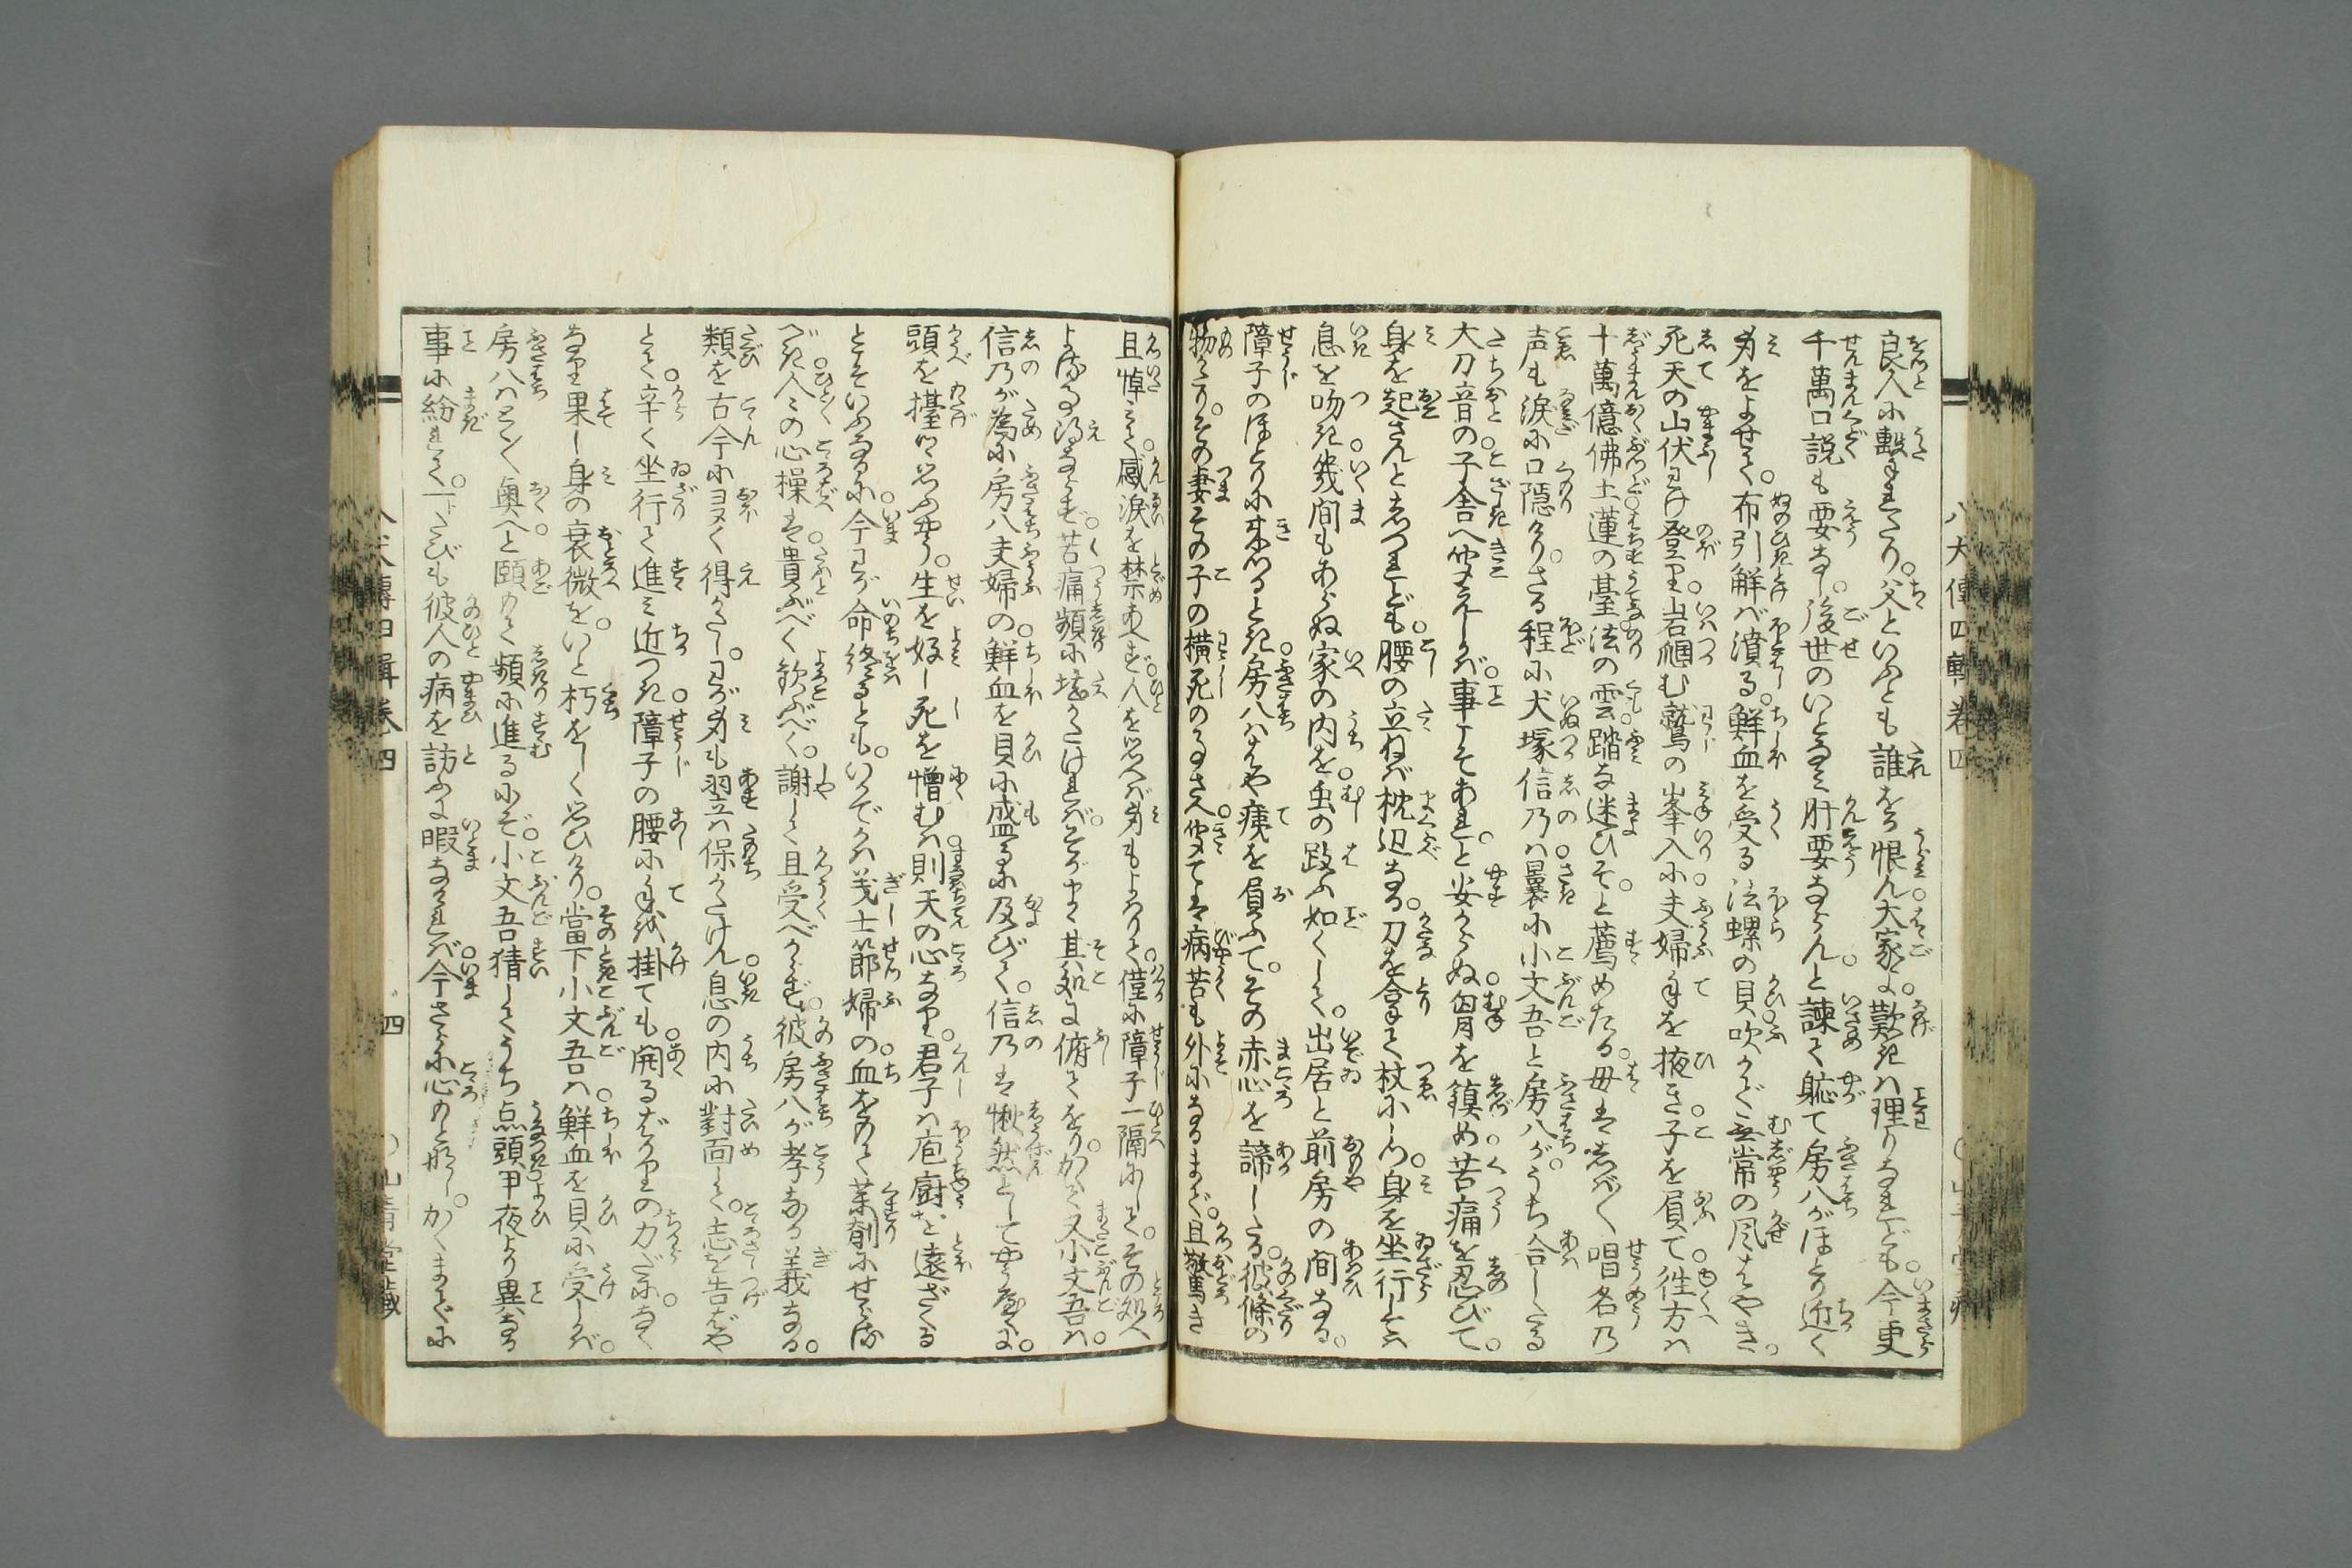 良人に撃れたり。父といふとも誰をか恨ん大家よ。歎きは理りなれども。今更
千萬口説も要なし。後世のいとなみ肝要ならん。と諫て軈て房八がほとり近く
身をよせて。布引解ば濆る。鮮血を受る法螺の貝吹かで無常の風はやき。
死天の山伏わけ登り。岩堌む鷲の峯入に夫婦手を掖き子を負て。往方は
十萬億佛土。蓮の臺法の雲。踏な迷ひそ。と薦めたる。母は志ばく唱名の
声も涙に口隠けり。さる程に犬塚信乃は。曩に小文吾と房八が。うち合したる
大刀音の。子舎へ聞えしかば。事こそあれ。と安からぬ。胷を鎮め苦痛を忍びて。
身を起さんと志つれども。腰の立ねば枕辺なる。刀を拿て杖にしつ。身を坐行しては
息を吻き。幾間もあらぬ家の内を。虫の跂ふ如くして。出居と前房の間なる。
障子のほとりに来つるとき。房八はや痍を負ふて。その赤心を諦したる。彼條の
物がたり。その妻その子の横死のるさへ。聞ては病苦も外になるまで。且驚き
且悼みて。感涙を禁あへず。人を思へば身もよわりて。僅に障子一隔にして。その処へ
よぢる得ならず。苦痛頻に堪がたければ。そが中に其処に俯てをり。かくて又小文吾は。
信乃が為に房八夫婦の。鮮血を貝に盛るに及びて。信乃は愀然として要る屋に。
頭を擡げ思ふやう。生を好し死を憎むは。則天の心なり。君子は庖廚を遠ざくる
とぞいふなるに。今わが命終るとも。いかでかは義士節婦の。血をもて薬剤にせらる
べき。人々の心操は。貴ぶべく歓ぶべく。謝して且受べからず。彼房八が孝なる義なる。
類を古今に多く得がたし。わが身も翌は保がたけん。息の内に對面して。志を告ばや
とて。辛く坐行て進み近づき。障子の腰に手を掛ても。開るばかりの力だになく
なり果し身の衰微を。いと朽をしく思ひけり。當下小文吾は。鮮血を貝に受しかば。
房八はとく〳〵奥へと頤もて。頻に進るにぞ。小文吾猜してうち点頭。甲夜より異なる
事に紛れて。一トたびも彼人の病を訪ふに暇なければ。今さらに心のとなし。かくまでに
八犬傳四輯巻四
四
〇山青堂藏